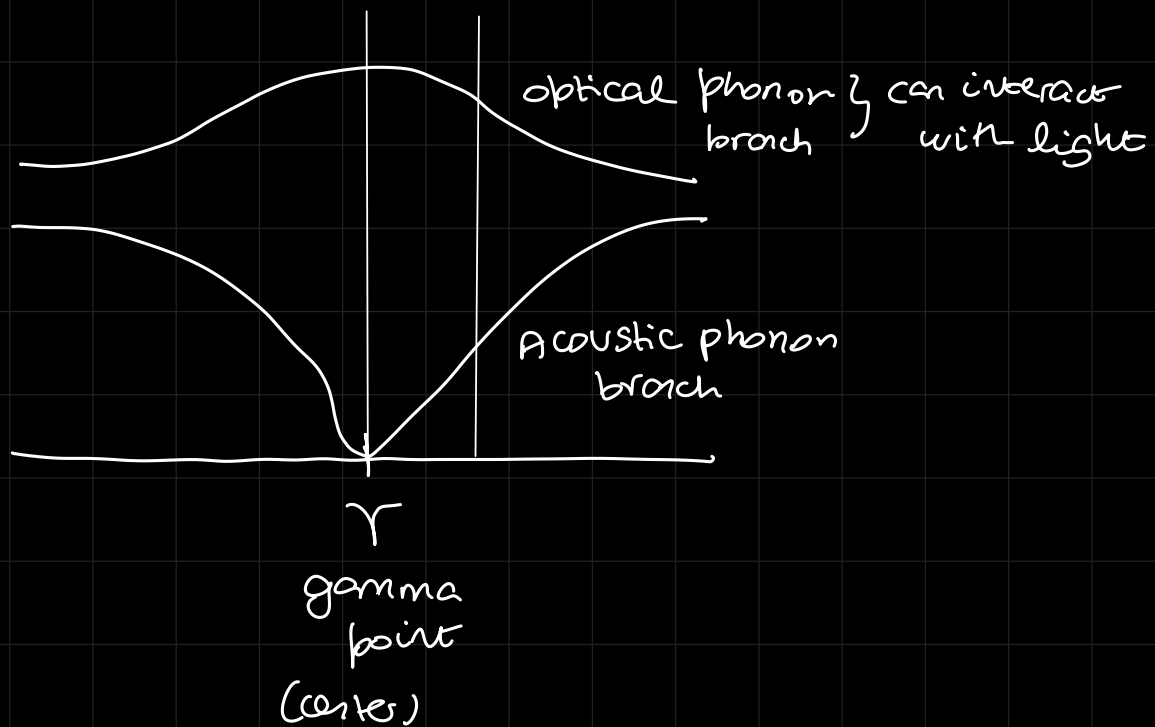 optical phonon } can interact
branch with light
Acoustic phonon
branch
γ
gamma
point
(center)